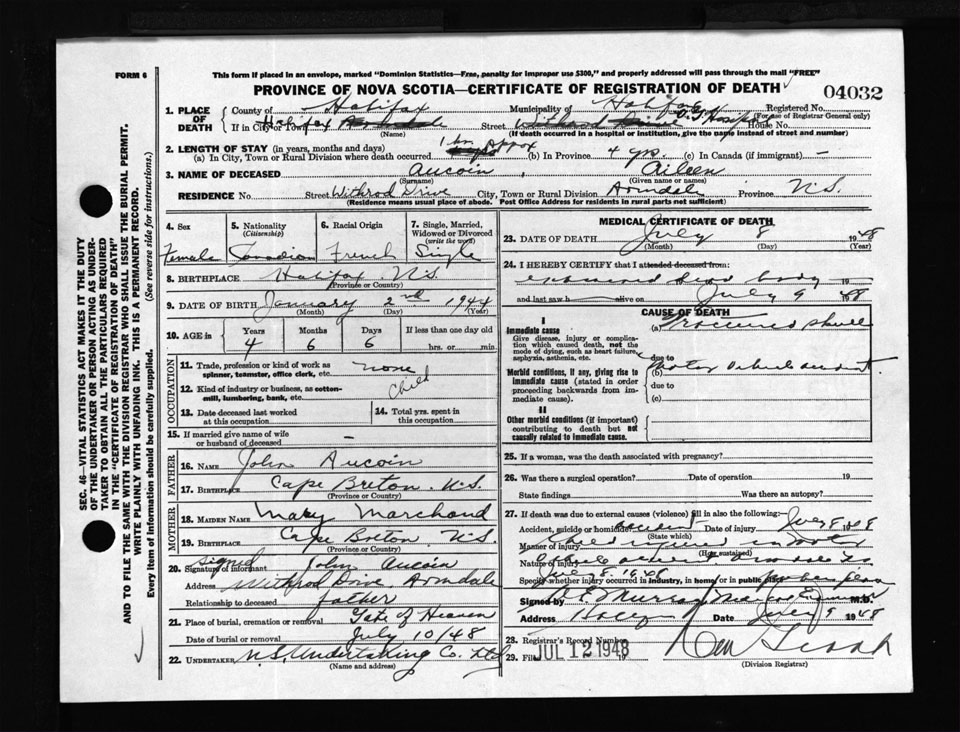 FORM 6
This form if placed in an envelope, marked "Dominion Statistics—Free, penalty for improper use $300," and properly addressed will pass through the mail "FREE"
PROVINCE OF NOVA SCOTIA—CERTIFICATE OF REGISTRATION OF DEATH
04032
1. PLACE OF DEATH
County of Halifax Municipality of Halifax Registered No.
(For use of Registrar General only)
If in City or Town Halifax Armdale Street Withrod Drive House No.
(Name) (If death occurred in a hospital or institution, give the name instead of street and number)
2. LENGTH OF STAY (in years, months and days)
(a) In City, Town or Rural Division where death occurred 1 hr approx (b) In Province 4 yrs. (c) In Canada (if immigrant) —
3. NAME OF DECEASED Aucoin, Aileen
(Surname) (Given name or names)
RESIDENCE No. Street Withrod Drive City, Town or Rural Division Armdale Province N.S.
(Residence means usual place of abode. Post Office Address for residents of rural parts not sufficient)
4. Sex
Female
5. Nationality
(Citizenship)
Canadian
6. Racial Origin
French
7. Single, Married, Widowed or Divorced
(write the word)
Single
8. BIRTHPLACE Halifax N.S.
(Province or Country)
9. DATE OF BIRTH January 2nd 1944
(Month) (Day) (Year)
10. AGE in Years Months Days If less than one day old
4 6 6 hrs. or min.
OCCUPATION
11. Trade, profession or kind of work as spinner, teamster, office clerk, etc. none
12. Kind of industry or business, as cotton-mill, lumbering, bank, etc. Child
13. Date deceased last worked at this occupation
14. Total yrs. spent in this occupation
15. If married give name of wife or husband of deceased —
FATHER
16. NAME John Aucoin
17. BIRTHPLACE Cape Breton N.S.
(Province or Country)
MOTHER
18. MAIDEN NAME Mary Marchand
19. BIRTHPLACE Cape Breton N.S.
(Province or Country)
signed
20. Signature of informant John Aucoin
Address Withrod Drive Armdale
Relationship to deceased father
21. Place of burial, cremation or removal Gate of Heaven
Date of burial or removal July 10/48
22. UNDERTAKER N.S. Undertaking Co. Ltd
(Name and address)
MEDICAL CERTIFICATE OF DEATH
23. DATE OF DEATH July 8 1948
(Month) (Day) (Year)
24. I HEREBY CERTIFY that I attended deceased from:
examined dead body
and last saw h alive on July 9 1948
CAUSE OF DEATH
I
Immediate cause
Give disease, injury or complication which caused death, not the mode of dying, such as heart failure, asphyxia, asthenia, etc.
(a) Fractured skull
due to
Morbid conditions, if any, giving rise to immediate cause (stated in order proceeding backwards from immediate cause).
(b) Motor vehicle accident.
due to
(c)
II
Other morbid conditions (if important) contributing to death but not causally related to immediate cause.
25. If a woman, was the death associated with pregnancy?
26. Was there a surgical operation? Date of operation 19
State findings Was there an autopsy?
27. If death was due to external causes (violence) fill in also the following:
Accident, suicide or homicide? accident Date of injury July 8 1948
(State which)
Manner of injury Child injured in motor
(How sustained)
Nature of injury vehicle accident
July 8. 1948
Specify whether injury occurred in industry, in home or in public place
Signed by Murray M.D.
Address Date July 9 1948
28. Registrar's Record Number
29. Filed JUL 12 1948 19
(Division Registrar)
SEC. 46—VITAL STATISTICS ACT MAKES IT THE DUTY OF THE UNDERTAKER OR PERSON ACTING AS UNDERTAKER TO OBTAIN ALL THE PARTICULARS REQUIRED IN THE "CERTIFICATE OF REGISTRATION OF DEATH" AND TO FILE THE SAME WITH THE DIVISION REGISTRAR WHO SHALL ISSUE THE BURIAL PERMIT.
WRITE PLAINLY WITH UNFADING INK. THIS IS A PERMANENT RECORD.
Every item of information should be carefully supplied. (See reverse side for instructions.)